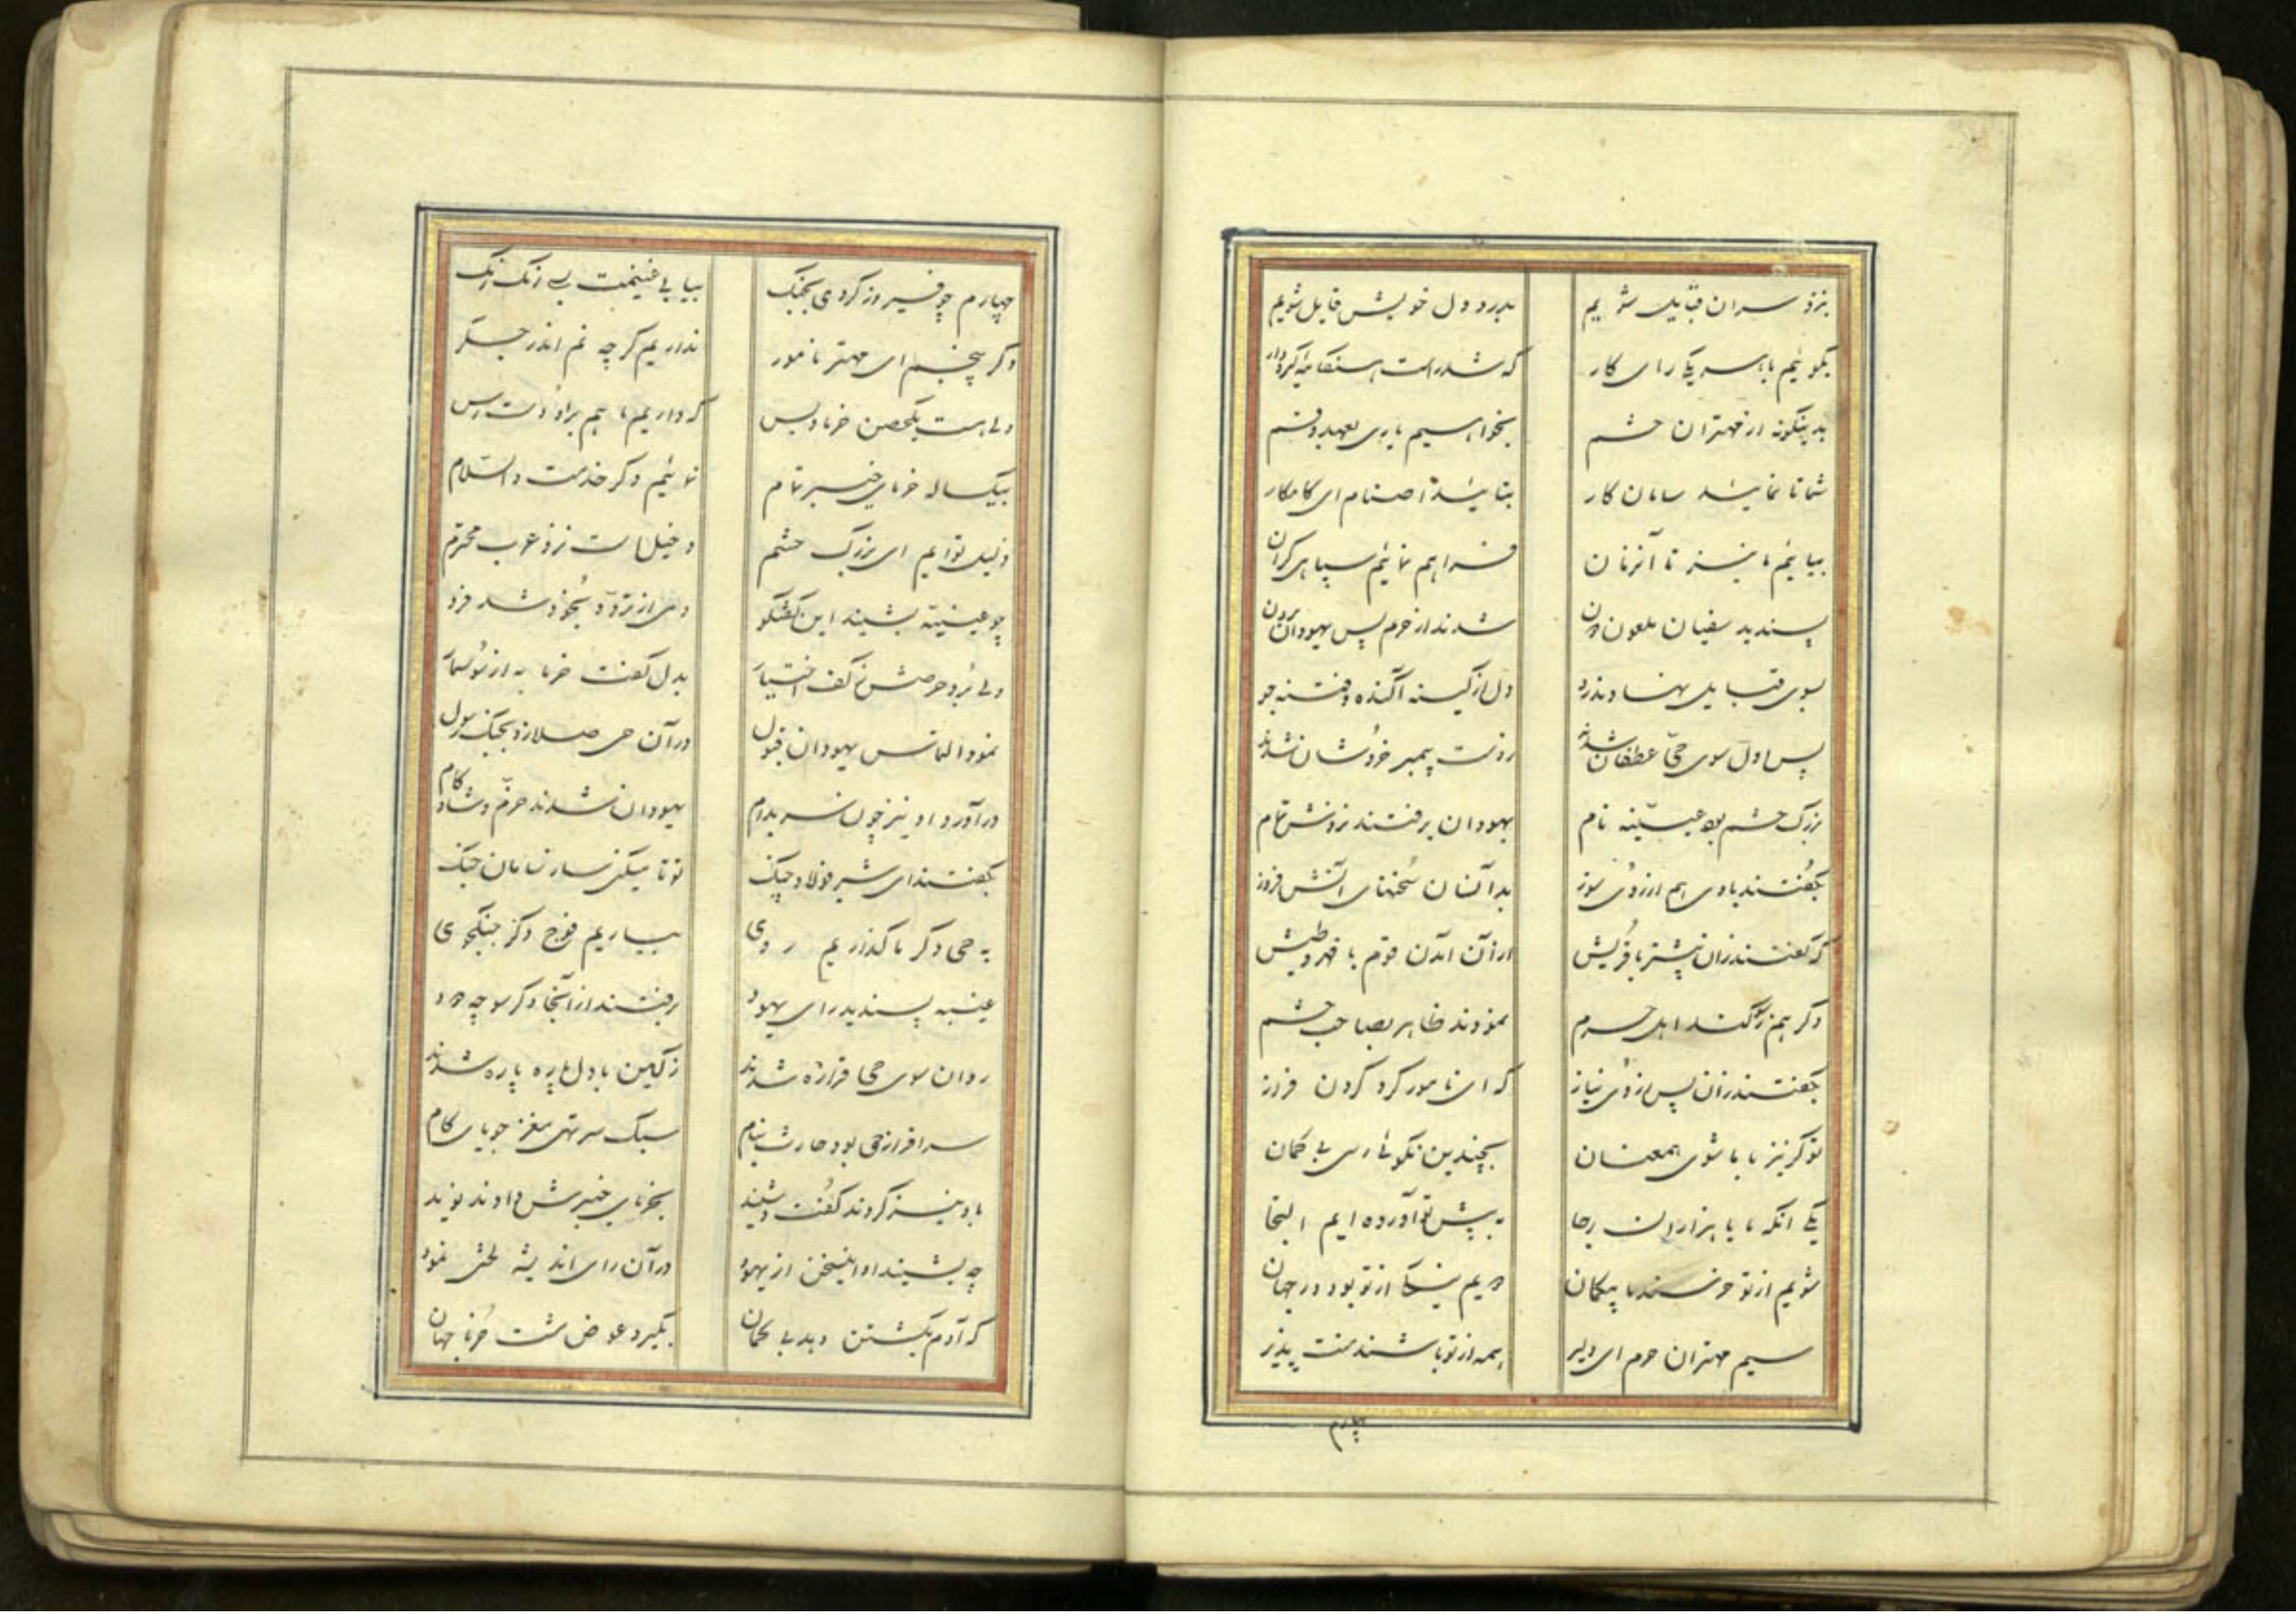 بنزد سران قبایل شویم بدرد دل خویش قایل شویم
بگوئیم با هر یکی رای کار که شد راست
بدینگونه از مهتران حشم بخواهیم یاری بعهد و قسم
شما تا نمائید سامان کار بتائید اصنام ای کامکار
بیائیم ما نیز تا آنزمان فراهم نمائیم سپاهی گران
پسندید سفیان ملعون شدند از حرم پس یهودان برون
بسوی قبایل نهادند رو دل از کینه آکنده و فتنه جو
پس اول سوی حی عطفان شدند ز دست پیمبر خروشان شدند
بزرگ حشم بد عیینه نام یهودان برفتند نزدش تمام
بگفتند با وی هم از روی سوز بدآنسان سخنهای آتش فروز
که گفتند زان پیشتر با قریش از آن آمدن قوم با قهر و طیش
دگر هم ز سوگند اهل حرم نمودند ظاهر بصاحب حشم
بگفتند زان پس ز روی نیاز که ای نامور گرد گردن فراز
تو گر نیز با ما شوی همعنان بچندین نکوئی رسی بی گمان
یکی آنکه ما با هزاران رجا به پیش تو آورده ایم التجا
شویم از تو خرسند ما بیکمان دویم نیکی از تو بود در جهان
سیم مهتران حرم ای دلیر همه از تو باشند منت پذیر
چهارم
چهارم چو فیروز گردی بجنگ بیابی غنیمت بسی رنگ رنگ
دگر پنجم ای مهتر نامور نداریم گرچه غم اندر جگر
ولی هست یکحصن خرما و بس که داریم ما هم براو دست رس
بیکساله خرمای خیبر تمام نمائیم دگر خدمت والسلام
دخیل توایم ای بزرگ حشم دخیل است نزد عرب محترم
چو عیینه بشنید این گفتگو دمی از تردد بخود شد فرو
ولی برد حرصش ز کف اختیار بدل گفت خرما به از سوسمار
نمود التماس یهودان قبول در آن حی صلا زد بجنگ رسول
درآورد او نیز چون سر بدام یهودان شدند خرم و شادکام
بگفتند ای شیر فولاد چنگ تو تا میکنی ساز سامان جنگ
به حی دگر ما گذاریم روی بیاریم فوج دگر جنگجوی
عیینه پسندید رای یهود برفتند از آنجا دگر سو چه دود
روان سوی حی فزاره شدند ز کین با دل پاره پاره شدند
سرافراز حی بود حارث بنام سبک سر تهی مغز جویای کام
باو نیز کردند گفت و شنید بخرمای خیبرش دادند نوید
چه بشنید او این سخن از یهود در آن رای اندیشه لختی نمود
که آدم بکشتن دهد بی گمان بگیرد عوض مشت خرما جهان